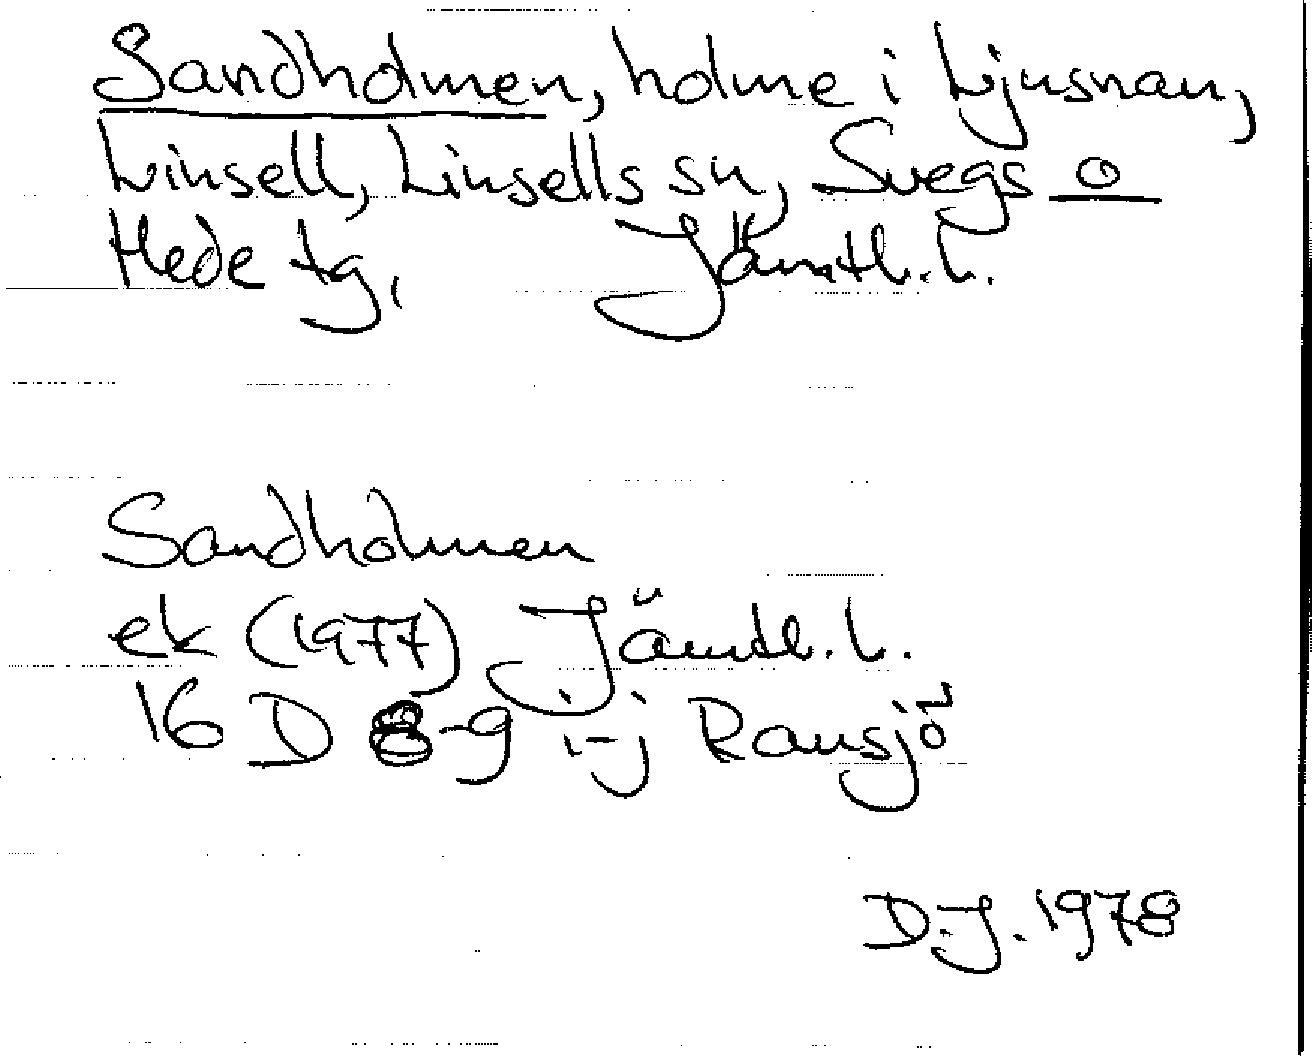 Sandholmen, holme i Ljusnan,
Linsell, Linsells sn, Svegs o
Hede tg, Jämtl. l.
Sandholmen
ek (1977) Jämtl. l.
16 D 8-9 i-j Ransjö
D.J. 1978